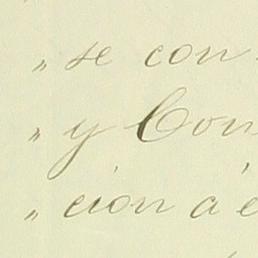 „ se con-
„ y Con
„ ción á e